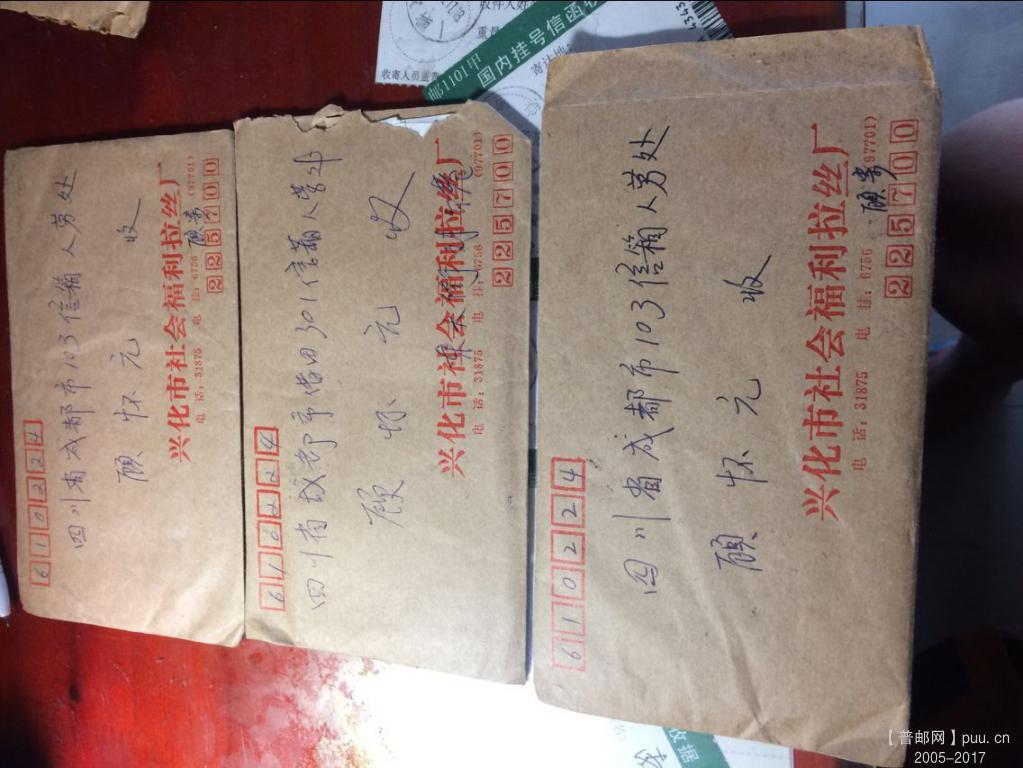 610224
四川省成都市103信箱人劳处
顾怀元 收
兴化市社会福利拉丝厂
电 话：31875 电 挂：6756 (97701)
顾寄
225700
610224
四川省成都市
301信箱人劳
顾怀元 收
兴化市社会福利拉丝厂
电 话：31875 电 挂：6756 (97701)
225700
610224
四川省成都市103信箱人劳处
顾怀元 收
兴化市社会福利拉丝厂
电 话：31875 电 挂：6756 (97701)
顾寄
225700
收件人姓
重量
收寄人员盖章
寄达地
邮1101甲
国内挂号信函收
4343
收据
【普邮网】puu.cn
2005-2017